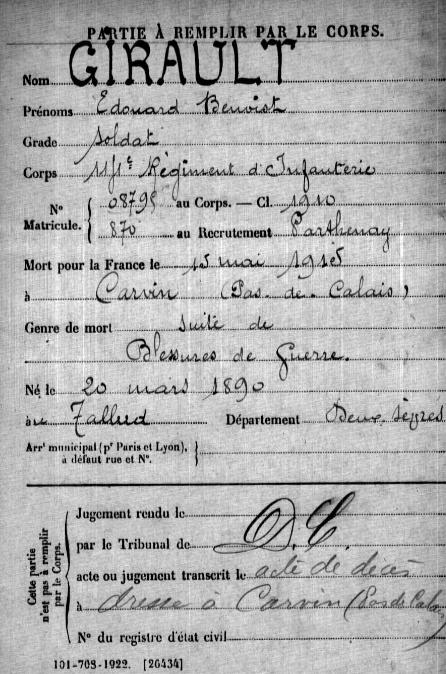 PARTIE À REMPLIR PAR LE CORPS.
Nom GIRAULT
Prénoms Edouard Benoist
Grade Soldat
Corps Régiment d'Infanterie
Nº Matricule. { 08795 au Corps. — Cl. 1910
870 au Recrutement Parthenay
Mort pour la France le 15 mai 1915
à Carvin (Pas-de-Calais)
Genre de mort Suite de
Blessures de Guerre.
Né le 20 mars 1890
au Tallud Département Deux-Sèvres
Arrt municipal (pr Paris et Lyon), à défaut rue et Nº. }
Cette partie n'est pas à remplir par le Corps.
Jugement rendu le
par le Tribunal de
acte ou jugement transcrit le acte de décès
à dressé à Carvin (Pas de Calais
Nº du registre d'état civil
101-708-1922. [26434]